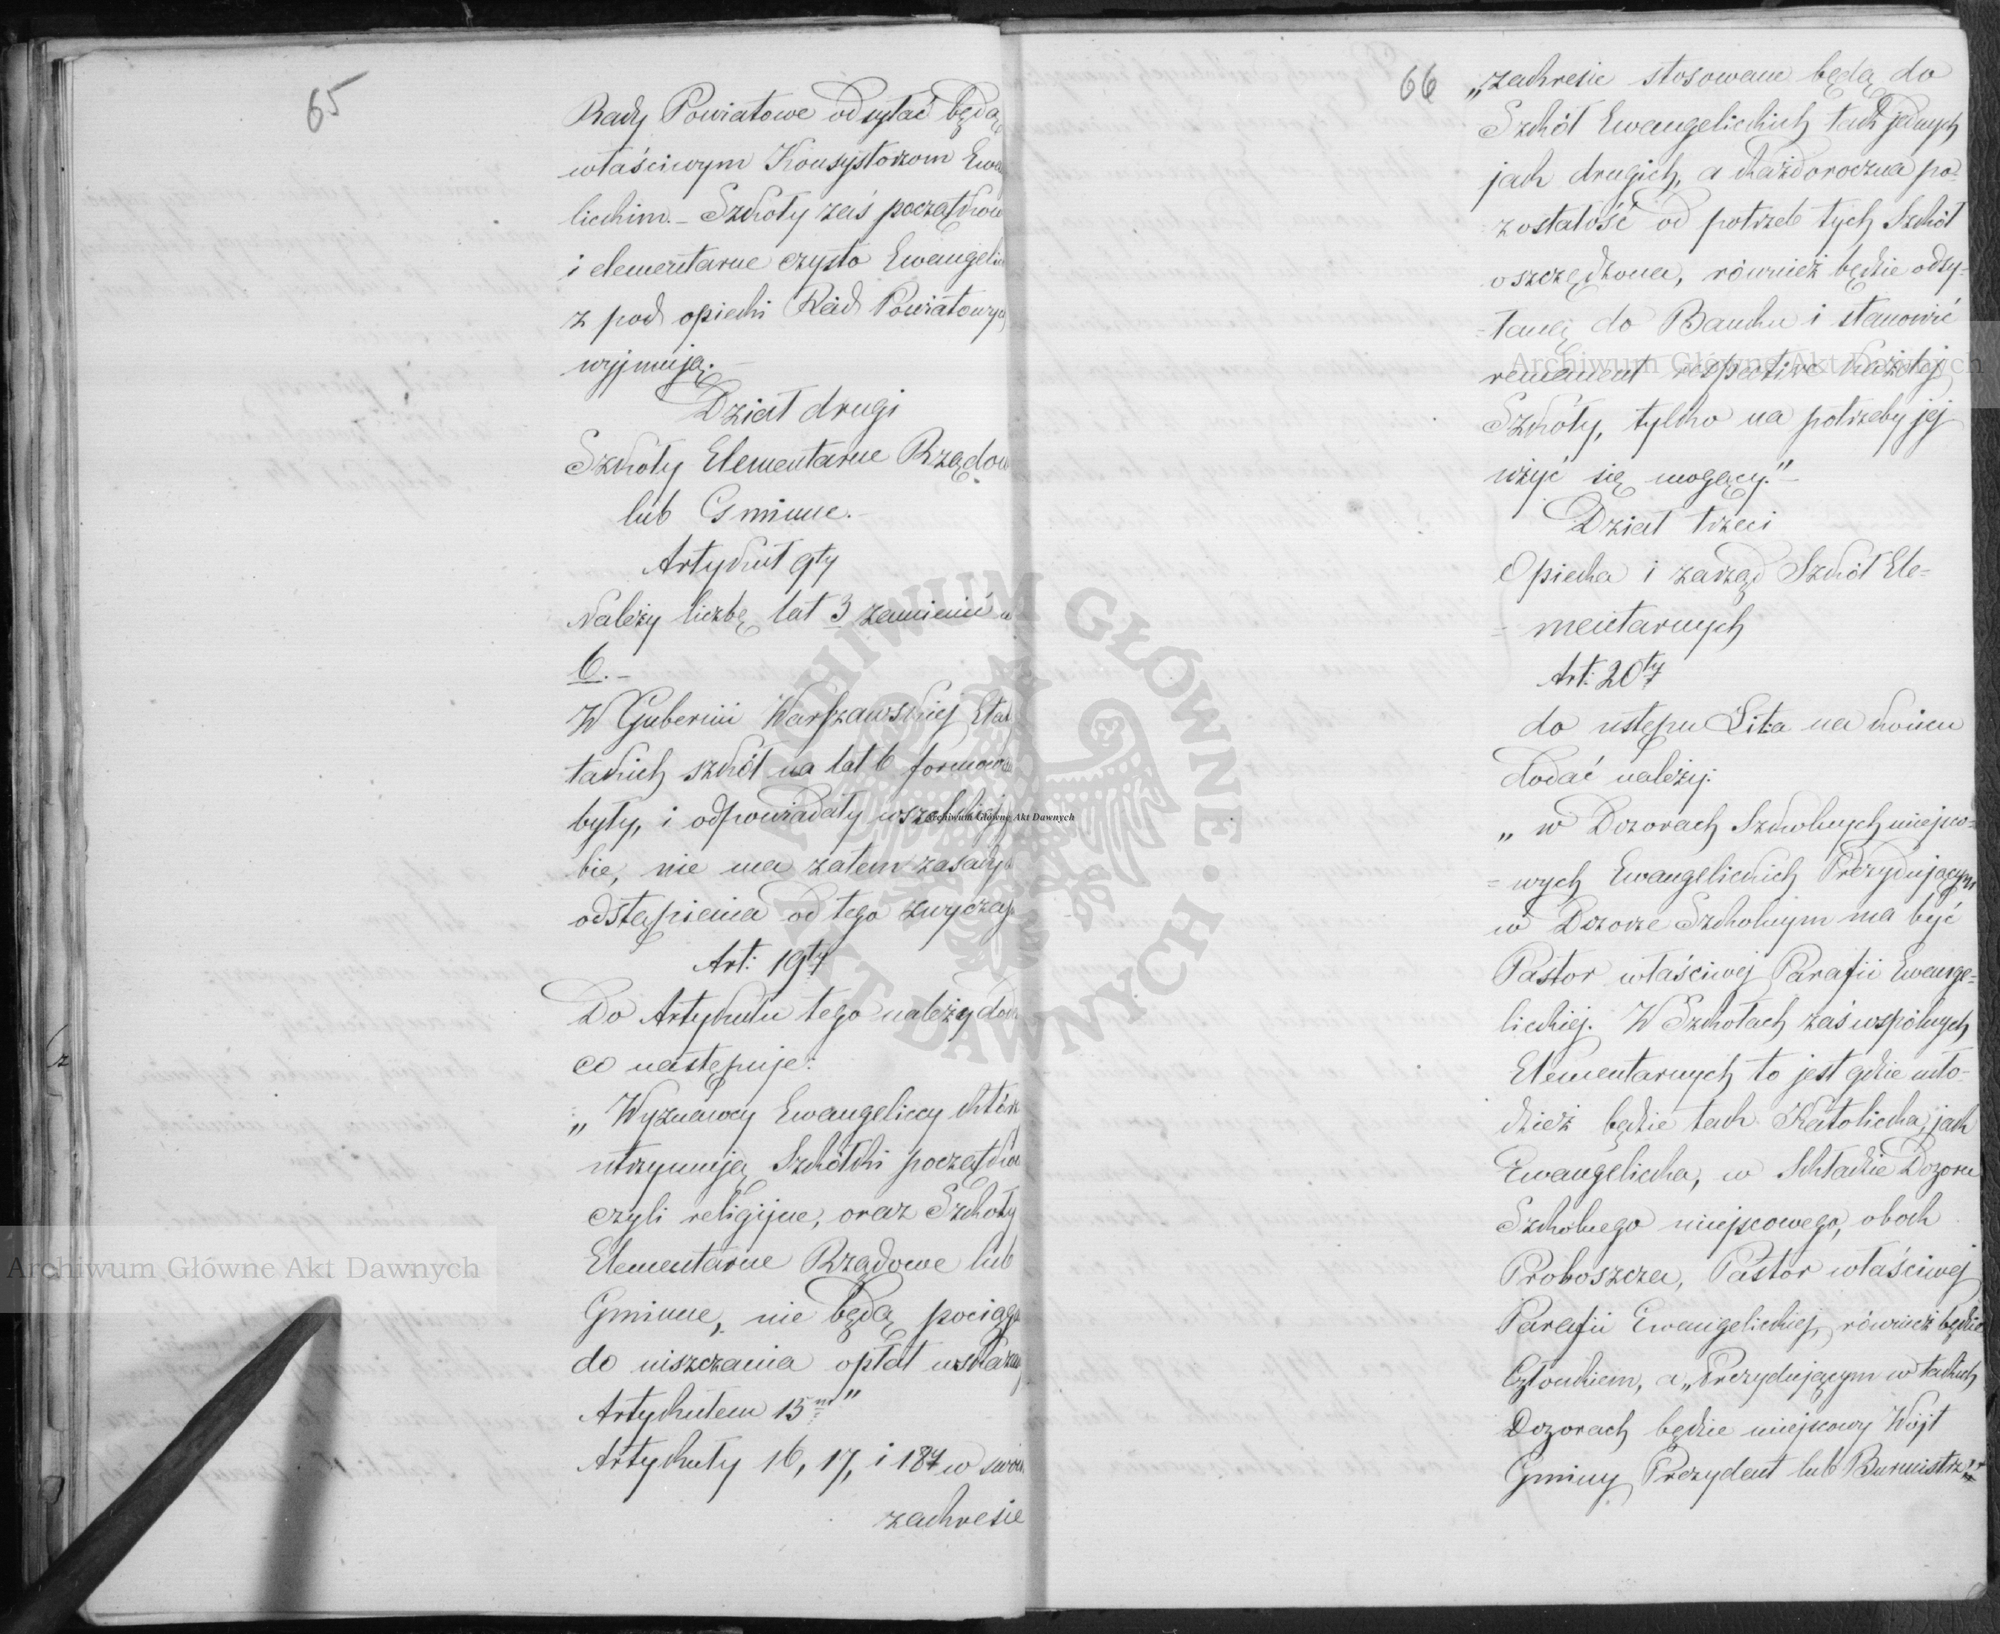 65
Rady Powiatowe odsyłać będą
właściwym Konsystorzom Ewa
lickim. – Szkoły zaś początkow
i elementarne czysto Ewangelic
z pod opieki Rad Powiatowyc
wyjmują. –
Dział drugi
Szkoły Elementarne Rządow
lub Gminne. –
Artykuł 9ty
Należy liczbę lat 3 zamienić
6. –
W Gubernii Warszawskiej Eta
takich szkół na lat 6 formowa
były, i odpowiadały wszelkiej
bie, nie ma zatem zasady
odstąpienia od tego zwyczaj
Art: 19ty
Do Artykułu tego należy dod
co następuje:
„Wyznawcy Ewangeliccy któr
utrzymują Szkółki początko
czyli religijne, oraz Szkoły
Elementarne Rządowe lub
Gminne, nie będą pociąg
do uiszczania opłat wskaza
Artykułem 15m"
Artykuły 16, 17, i 18ty w swoi
zakresie
66
„zakresie stosowane będą do
Szkół Ewangelickich tak jednych
jak drugich, a każdoroczna po-
zostałość od potrzeb tych Szkół
oszczędzona, również będzie odsy-
=łaną do Banku i stanowić
remanent respective każdej
Szkoły, tylko na potrzeby jej
użyć się mogący." –
Dział trzeci
Opieka i zarząd Szkół Ele=
= mentarnych
Art: 20ty
do ustępu Lit:a na końcu
dodać należy:
„w Dozorach Szkolnych miejsco=
= wych Ewangelickich Prezydującym
w Dozorze Szkolnym ma być
Pastor właściwej Parafii Ewange=
lickiej. W Szkołach zaś wspólnych
Elementarnych to jest gdzie mło-
dzież będzie tak Katolicka, jak
Ewangelicka, w Składzie Dozoru
Szkolnego miejscowego, obok
Proboszcza, Pastor właściwej
Parafii Ewangelickiej, również będzie
Członkiem, a „Prezydującym w takich
Dozorach będzie miejscowy Wójt
Gminy Prezydent lub Burmistrz"
Archiwum Główne Akt Dawnych
Archiwum Główne Akt Dawnych
Archiwum Główne Akt Dawnych
ARCHIWUM GŁÓWNE · AKT DAWNYCH ·